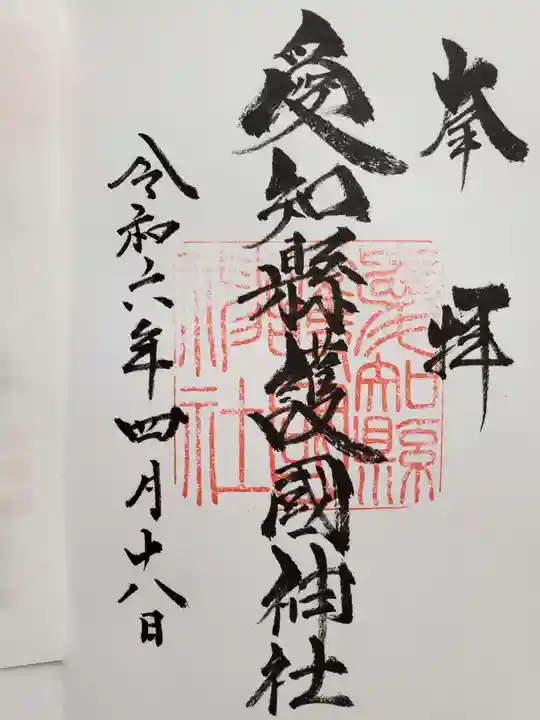 奉拝
愛知縣護國神社
令和六年四月十八日
愛知縣
護國神
社